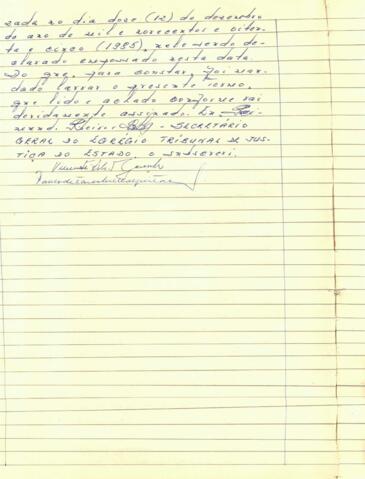 zada no dia doze (12) de dezembro
do ano de mil e novecentos e oiten-
ta e cinco (1985), nele sendo de-
clarado empossado nesta data.
Do que, para constar, foi man-
dado lavrar o presente termo,
que lido e achado conforme vai
devidamente assinado. Eu
SECRETÁRIO
GERAL DO EGRÉGIO TRIBUNAL DE JUS-
TIÇA DO ESTADO, o subscrevi.